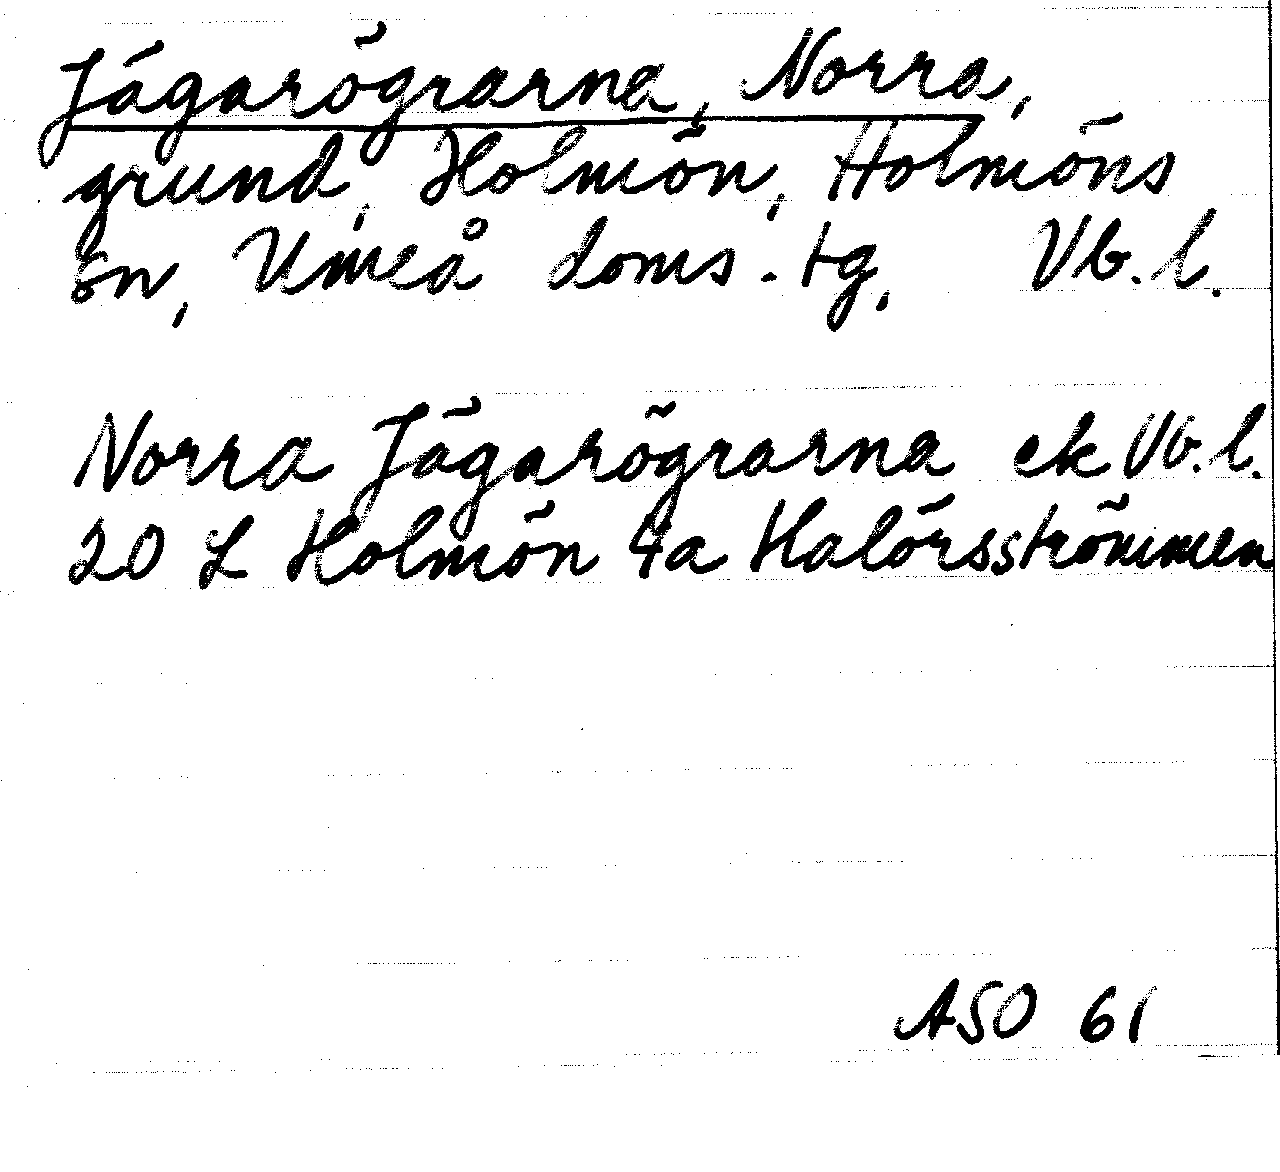 Jägarögrarna, Norra,
grund, Holmön, Holmöns
sn, Umeå doms. tg. Vb. l.
Norra Jägarögrarna ek Vb. l.
20 L Holmön 4a Halörsströmmen
ASO 61